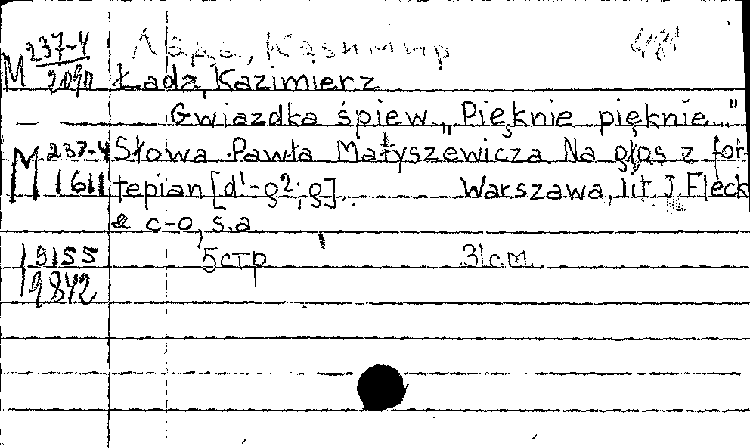 М 237-4 Лада, Казимир
2090 Łada, Kazimierz
Gwiazdka śpiew „Pięknie pięknie..."
М 237-4 Słowa Pawła Matyszewicza Na głos z for
1611 tepian [d¹-g²; g]. Warszawa, lit. J. Fleck
& c-o, s.a
19155 5 стр 31 с.m.